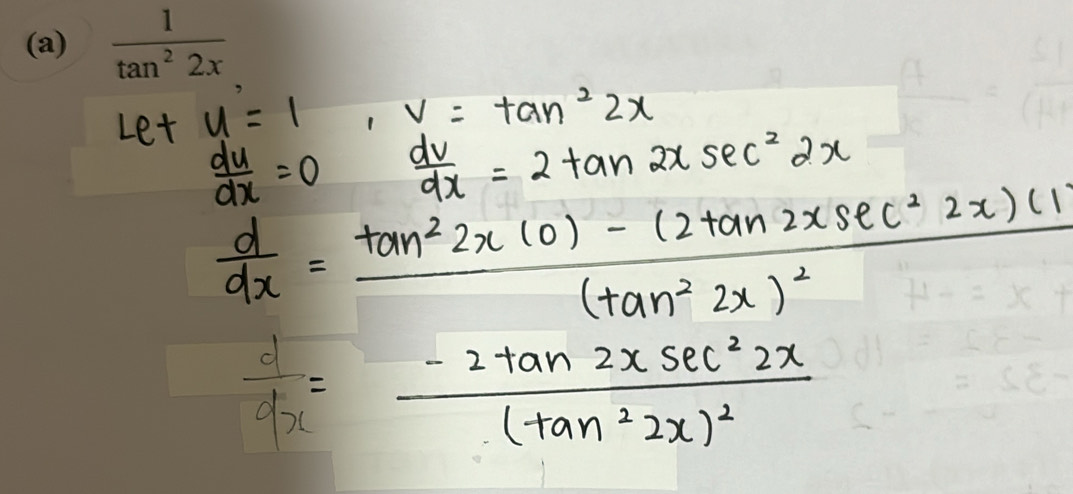 (a) 1 / tan² 2x
Let u = 1 , v = tan² 2x
du/dx = 0 dv/dx = 2 tan 2x sec² 2x
d/dx = tan² 2x (0) - (2 tan 2x sec² 2x) (1) / (tan² 2x)²
d/dx = - 2 tan 2x sec² 2x / (tan² 2x)²